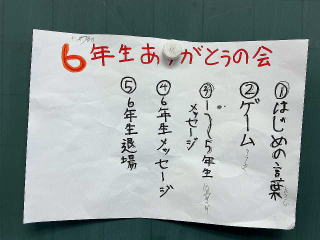 6年生ありがとうの会
①はじめの言葉
②ゲーム
③1〜5年生
メッセージ
④6年生メッセージ
⑤6年生退場